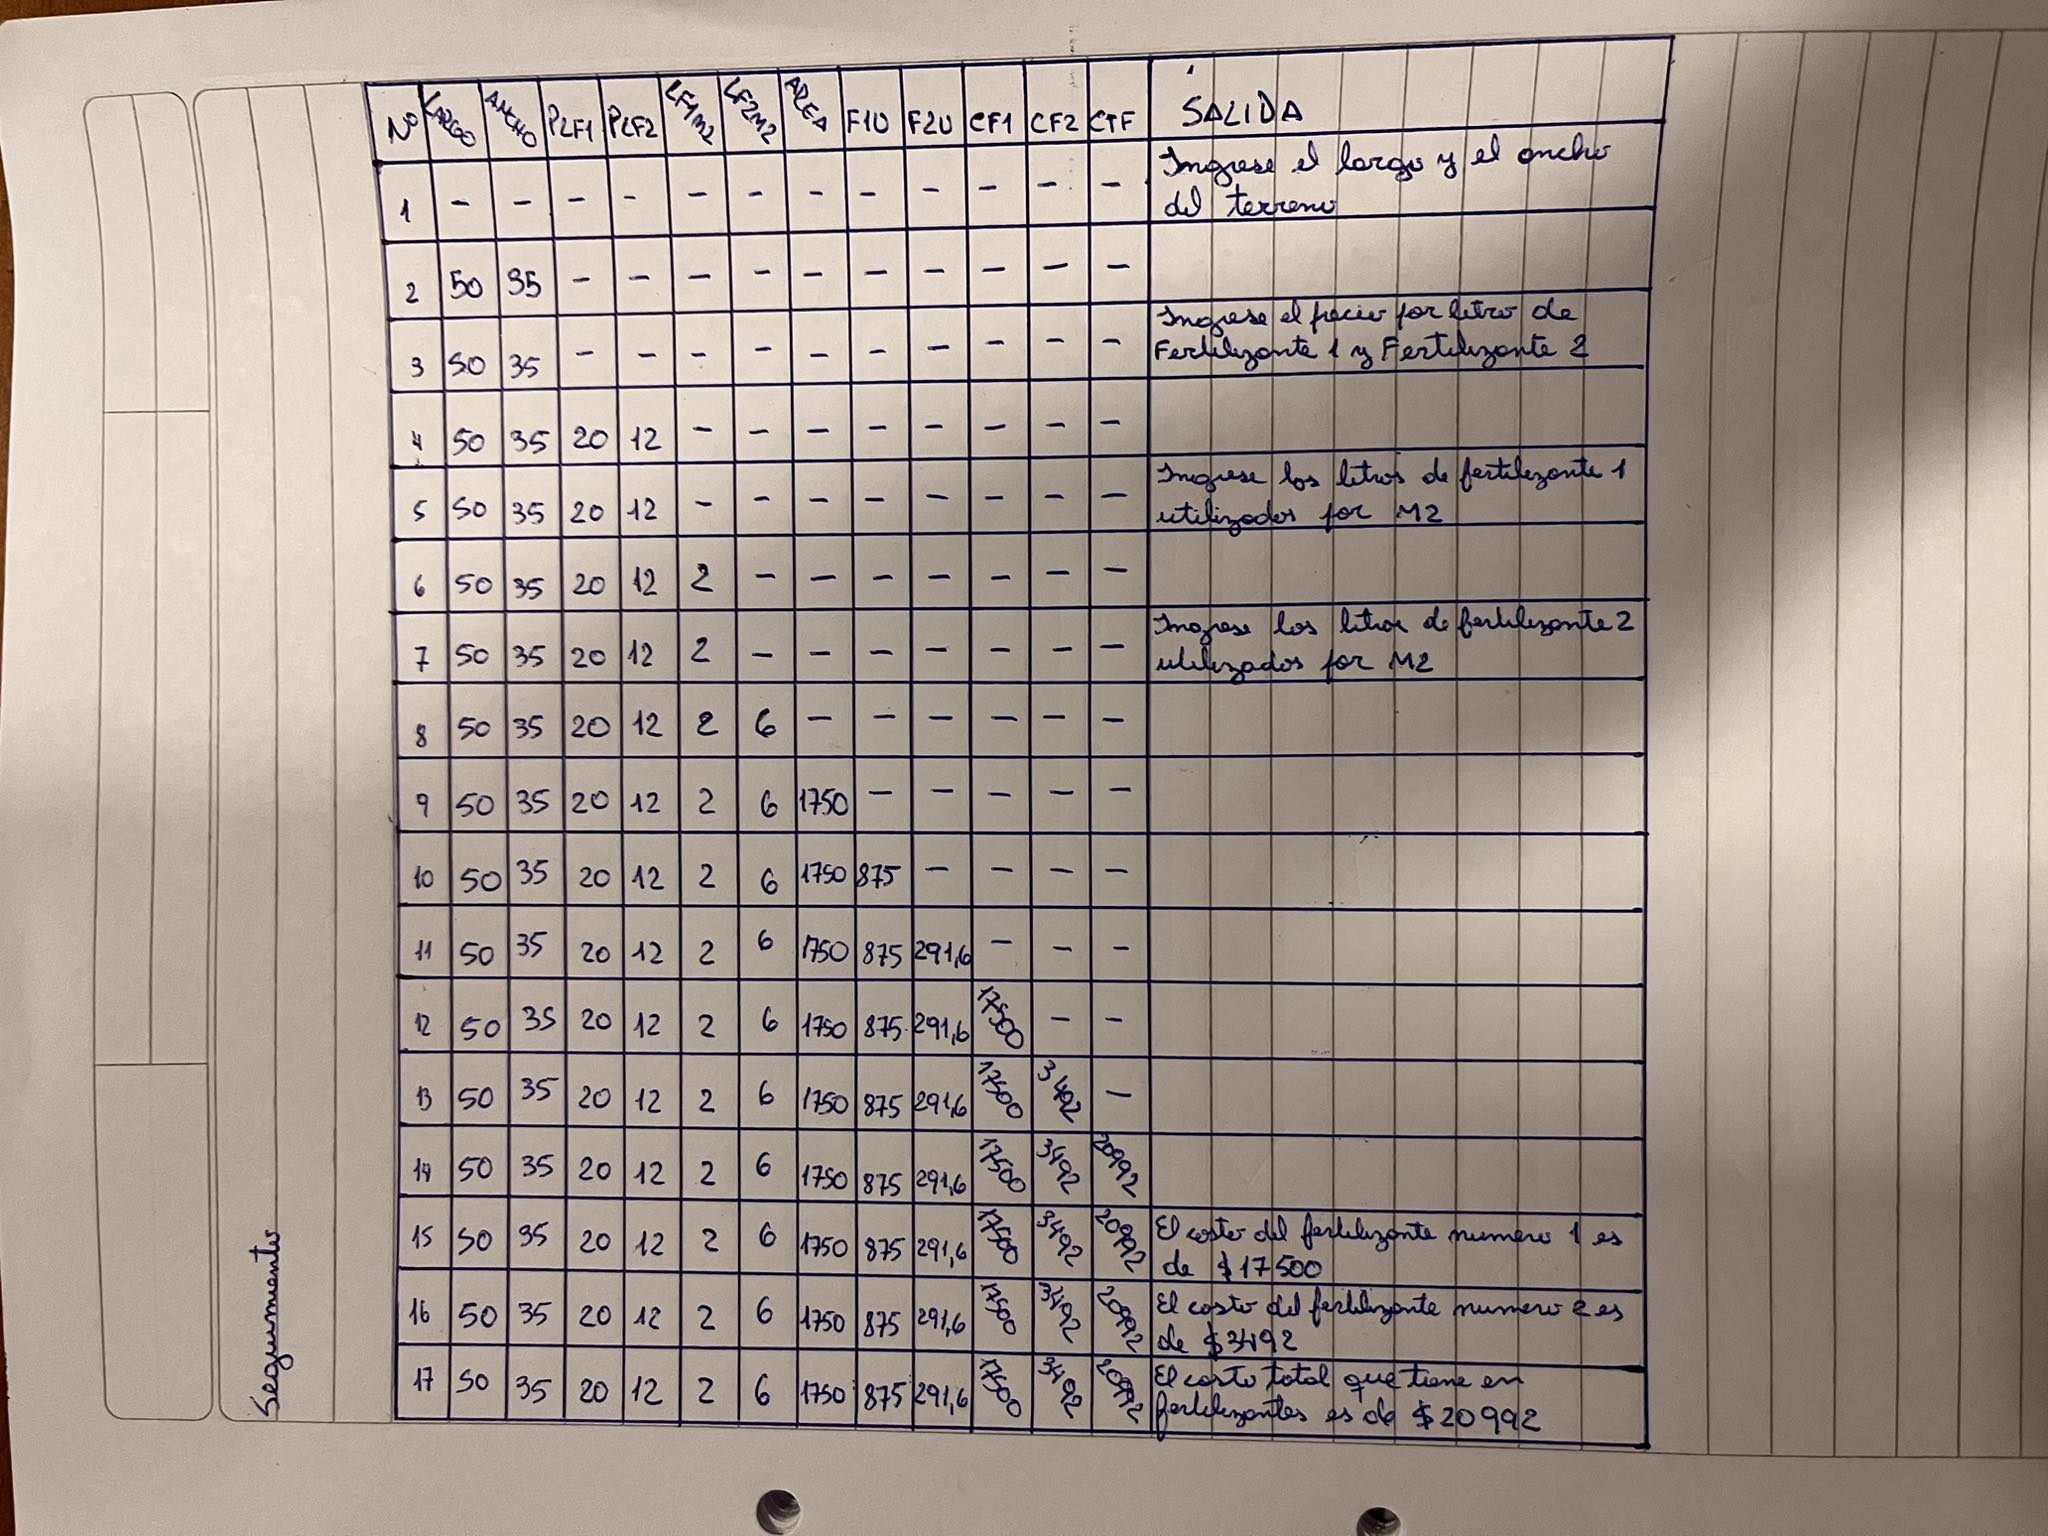 Seguimiento
Nº LARGO ANCHO PLF1 PLF2 LF1M2 LF2M2 AREA F1U F2U CF1 CF2 CTF SALIDA
1 - - - - - - - - - - - - Ingrese el largo y el ancho
del terreno
2 50 35 - - - - - - - - - -
3 50 35 - - - - - - - - - - Ingrese el precio por litro de
Fertilizante 1 y Fertilizante 2
4 50 35 20 12 - - - - - - - -
5 50 35 20 12 - - - - - - - - Ingrese los litros de fertilizante 1
utilizados por M2
6 50 35 20 12 2 - - - - - - -
7 50 35 20 12 2 - - - - - - - Ingrese los litros de fertilizante 2
utilizados por M2
8 50 35 20 12 2 6 - - - - - -
9 50 35 20 12 2 6 1750 - - - - -
10 50 35 20 12 2 6 1750 875 - - - -
11 50 35 20 12 2 6 1750 875 291,6 - - -
12 50 35 20 12 2 6 1750 875 291,6 17500 - -
13 50 35 20 12 2 6 1750 875 291,6 17500 3492 -
14 50 35 20 12 2 6 1750 875 291,6 17500 3492 20992
15 50 35 20 12 2 6 1750 875 291,6 17500 3492 20992 El costo del fertilizante numero 1 es
de $17500
16 50 35 20 12 2 6 1750 875 291,6 17500 3492 20992 El costo del fertilizante numero 2 es
de $3492
17 50 35 20 12 2 6 1750 875 291,6 17500 3492 20992 El costo total que tiene en
fertilizantes es de $20992